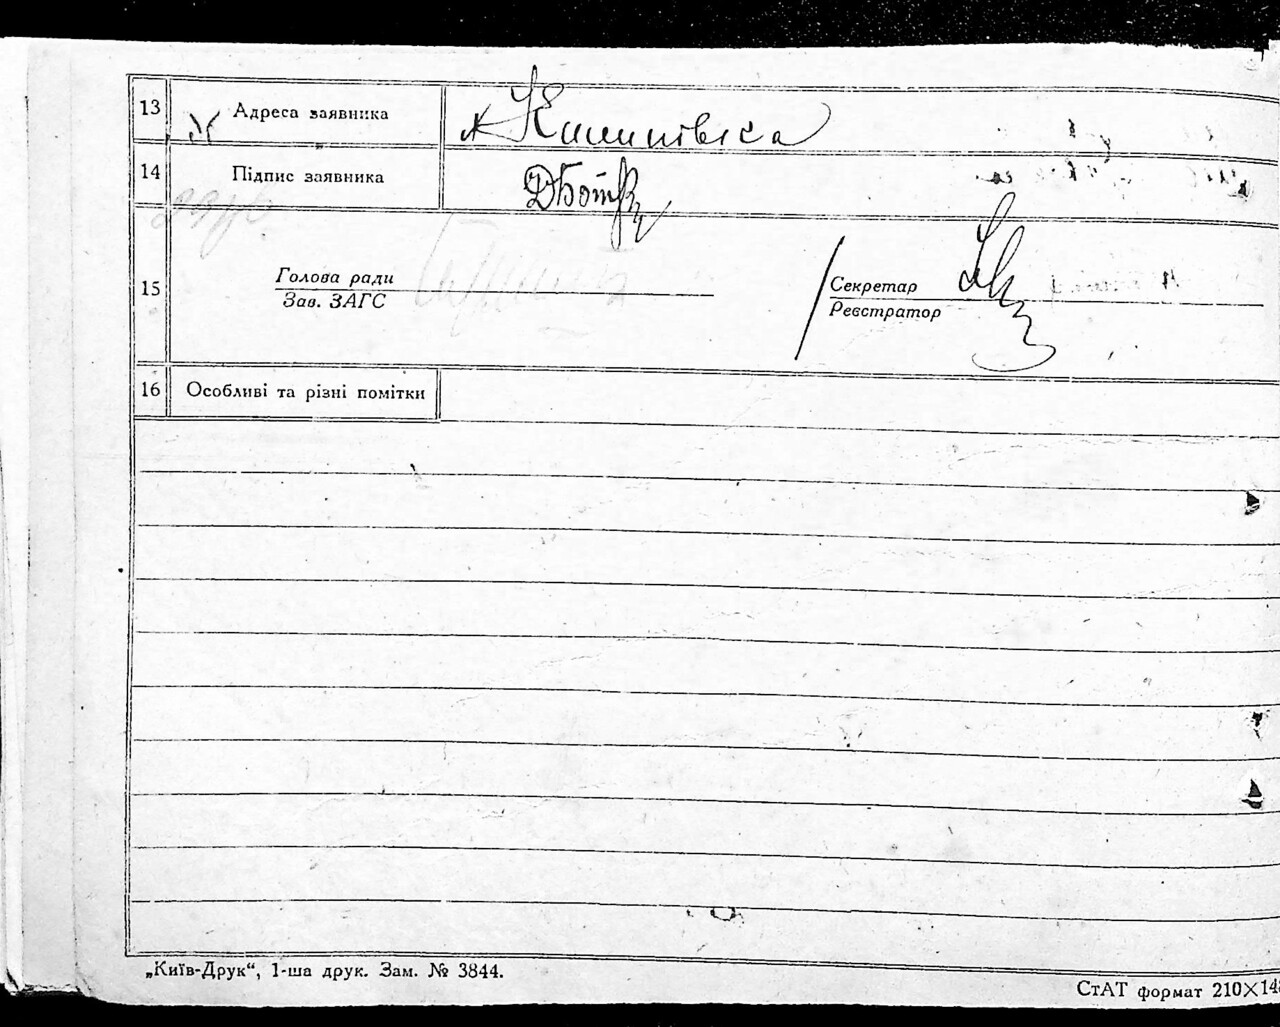 13 Адреса заявника
14 Підпис заявника
15 Голова ради
Зав. ЗАГС
Секретар
Реєстратор
16 Особливі та різні помітки
„Київ-Друк“, 1-ша друк. Зам. № 3844.
СтАТ формат 210×148